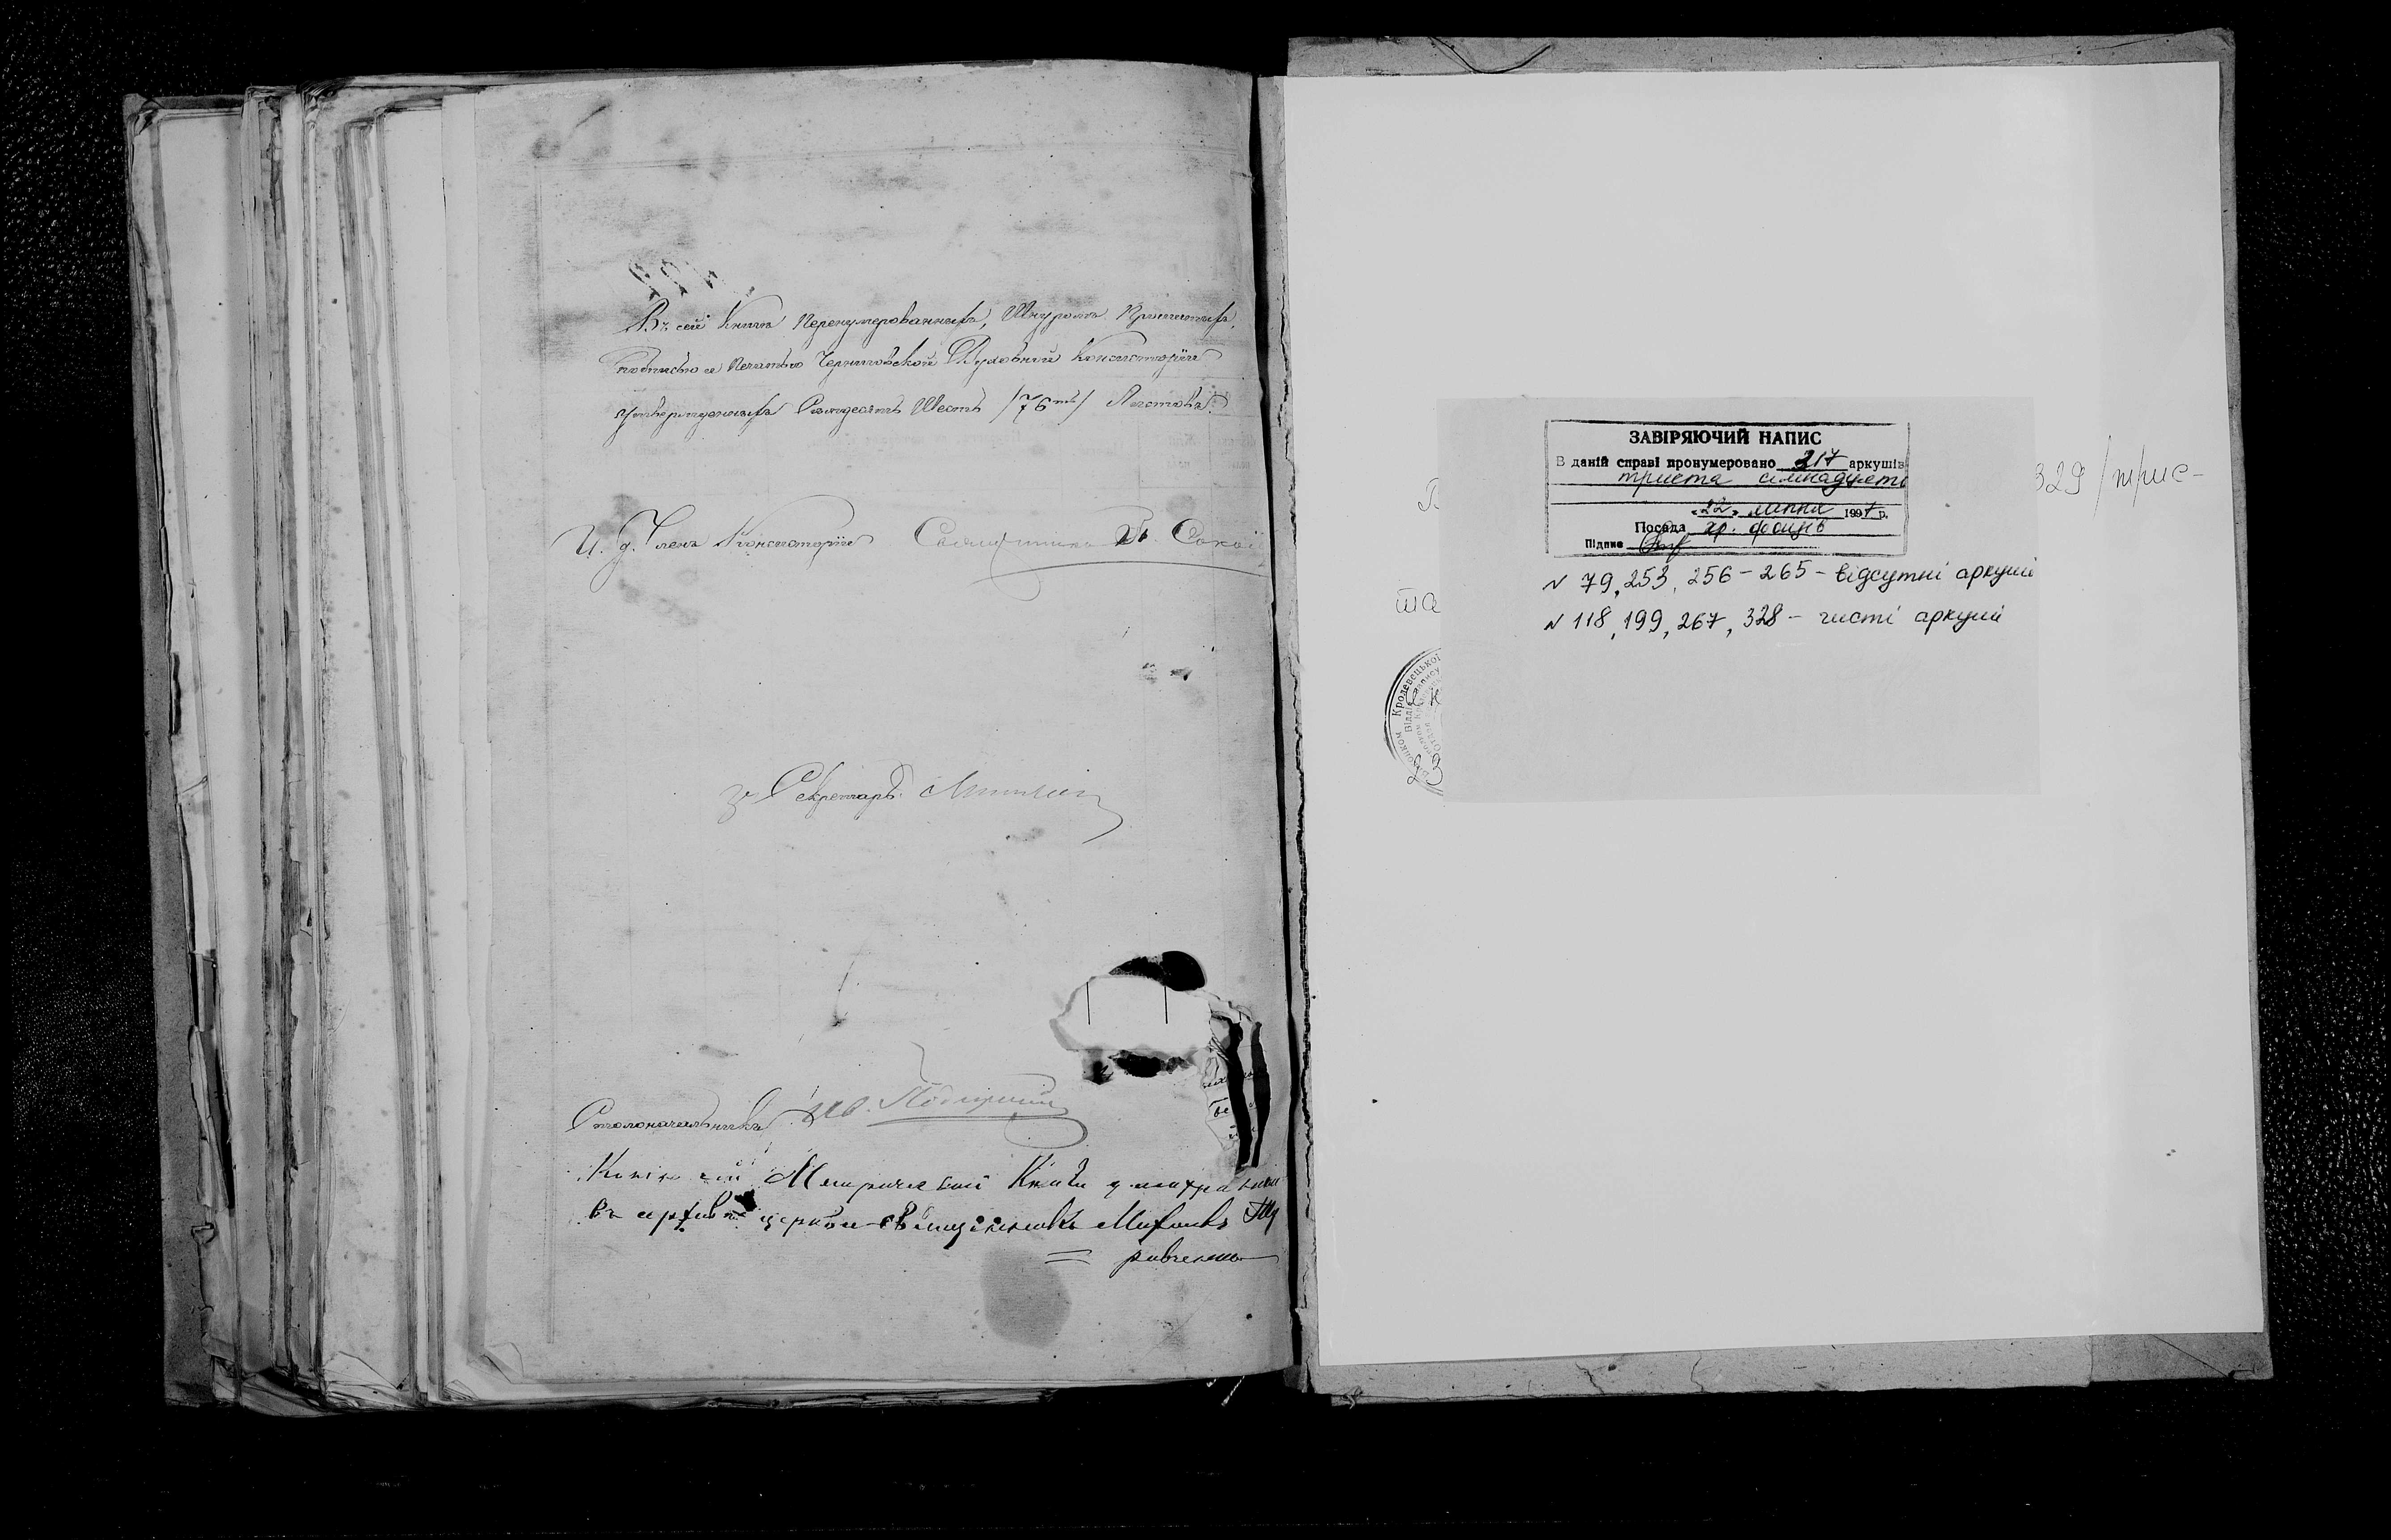 Въ сей Книгѣ Перенумерованныхъ, Шнуромъ Прошитыхъ,
подписью и Печатью Черниговской Духовной Консисторіи
утвержденныхъ Семдесятъ Шесть /76ть/ Листовъ.
И. д. Члена Консисторіи Священникъ
За Секретаря
Столоначальникъ
Копія сей Метрической Книги
въ архивъ церкви священникъ
ЗАВІРЯЮЧИЙ НАПИС
В даній справі пронумеровано 317 аркушів
триста сімнадцять
"22" липня 1997 р.
Посада хр. фондів
Підпис
329 /трис-
та
N 79, 253, 256-265 - відсутні аркуші
N 118, 199, 267, 328 - чисті аркуші